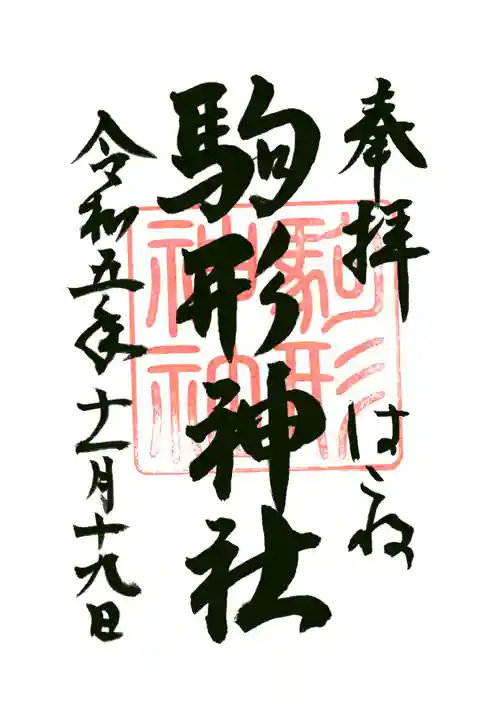 奉拝 はこね
駒形神社
令和五年十一月十九日
駒形
神社